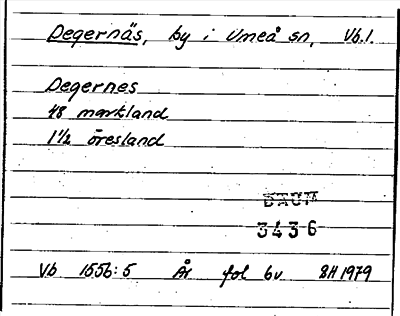 Degernäs, by i Umeå sn, Vb.l.
Degernes
48 markland
1 1/2 öresland
DAUM
3436
Vb 1556:5 År fol 6v BH 1979